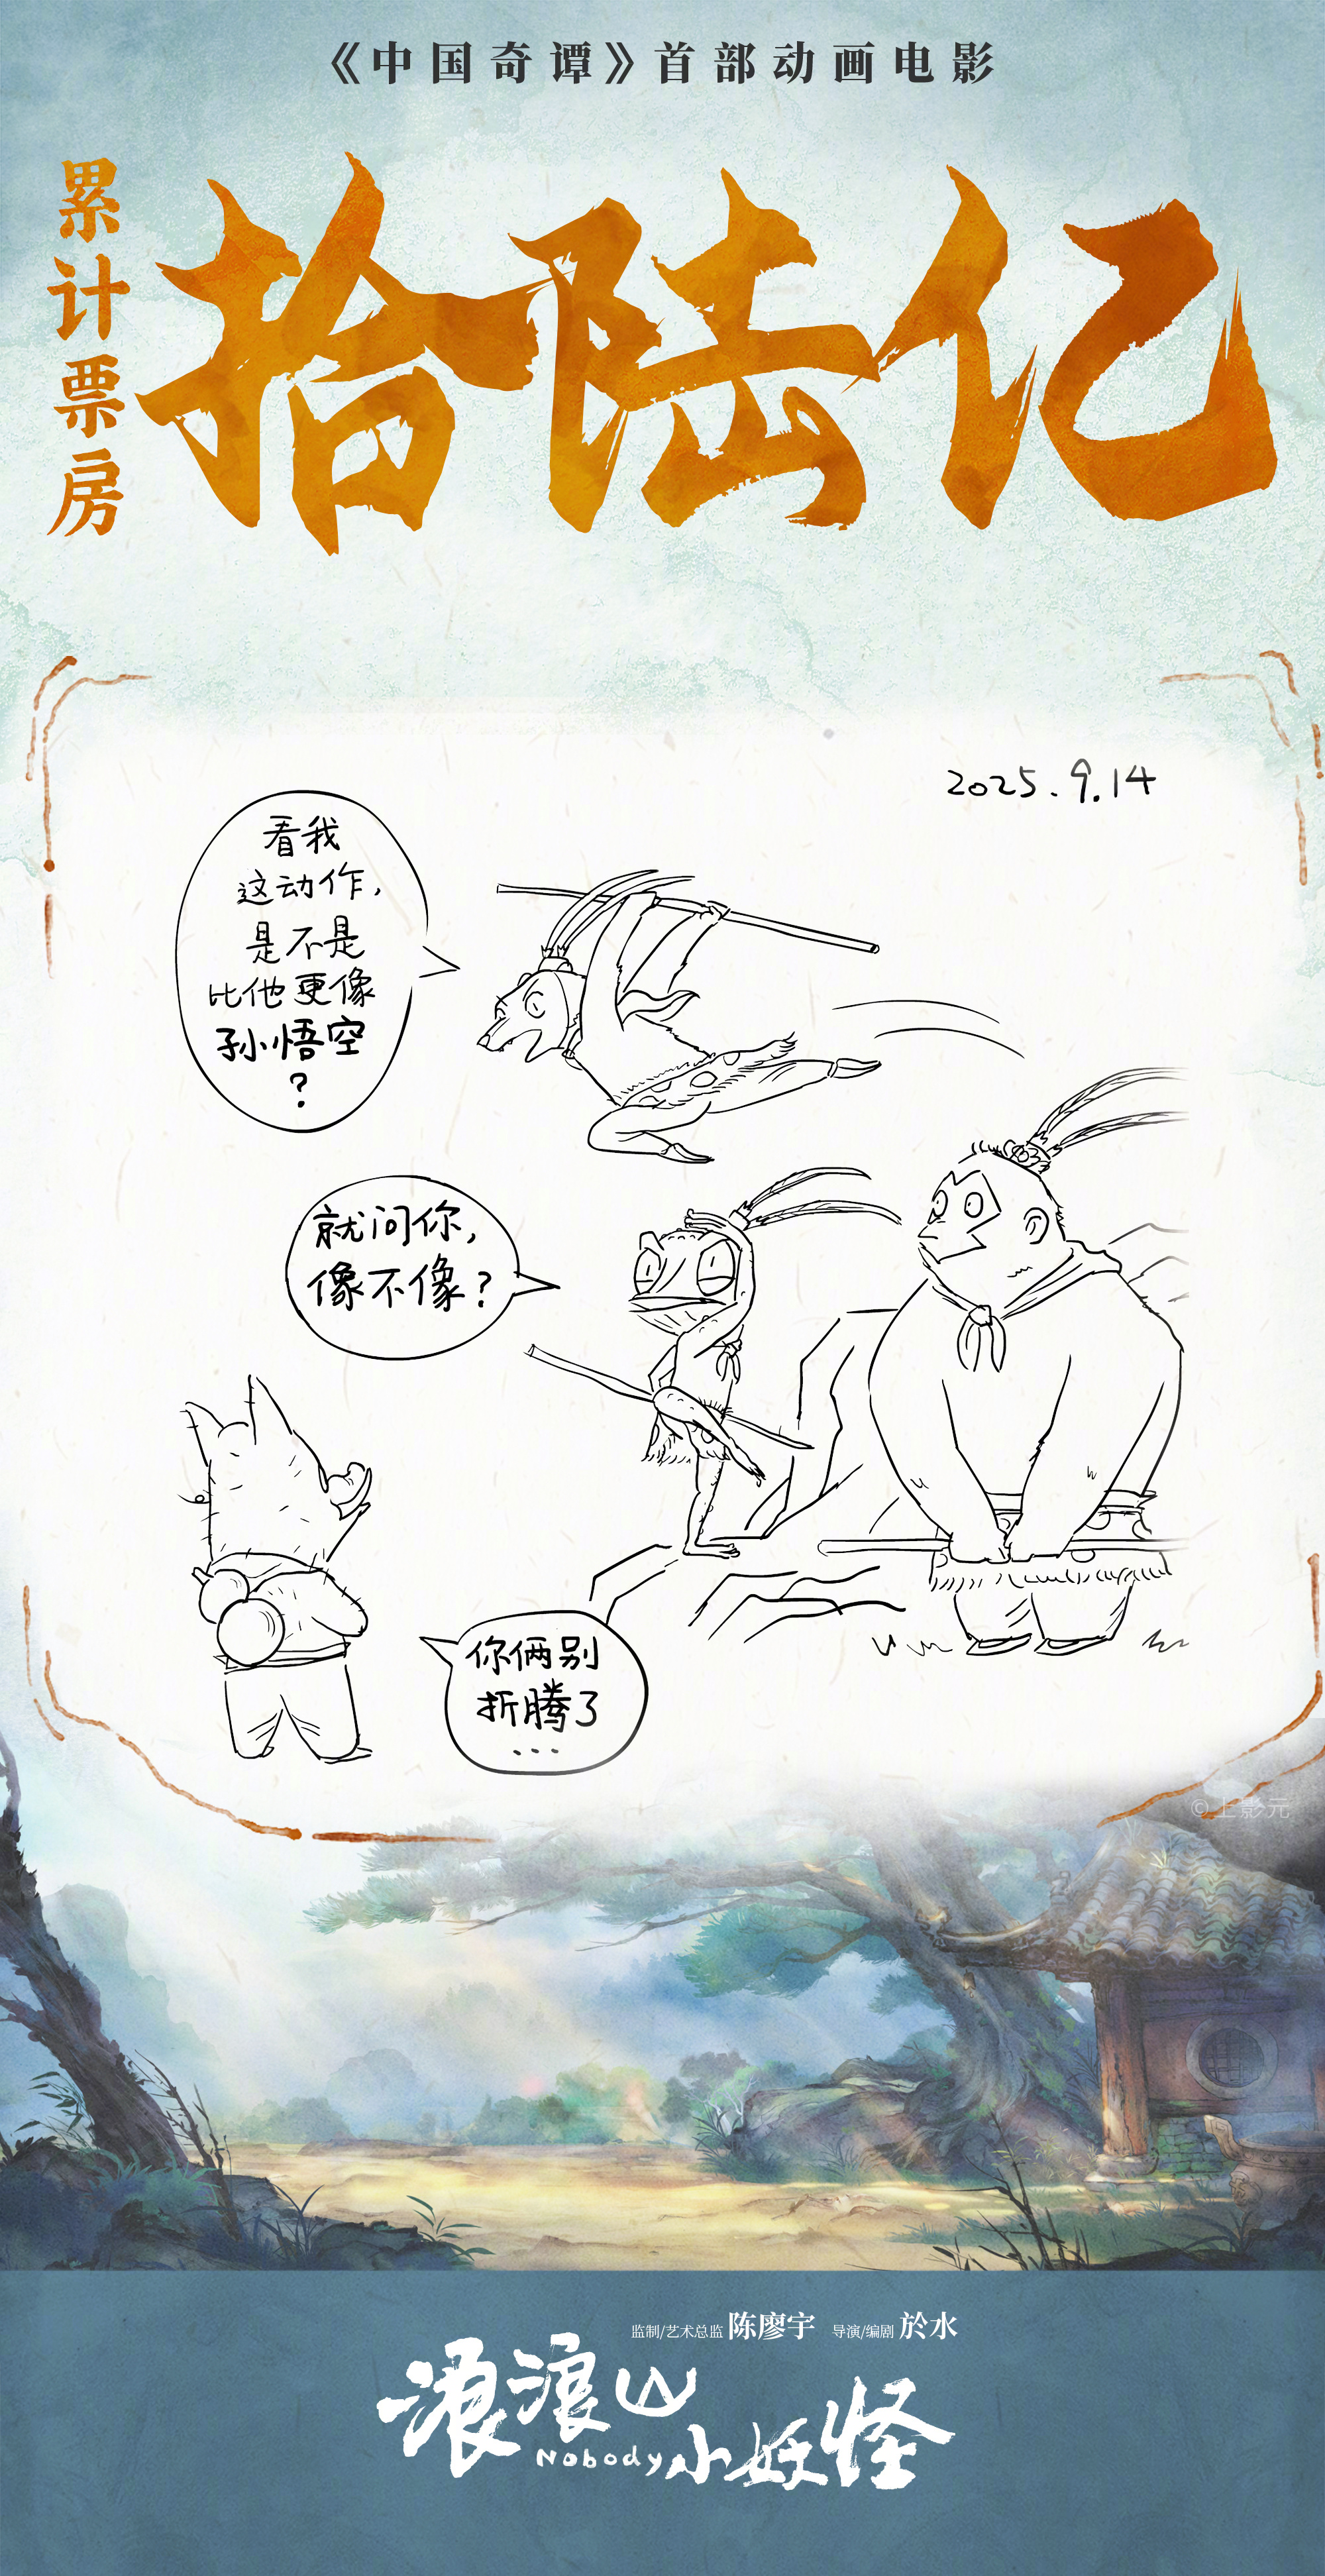 《中国奇谭》首部动画电影
累计票房
拾陆亿
2025.9.14
看我
这动作,
是不是
比他更像
孙悟空
?
就问你,
像不像?
你俩别
折腾了
...
©上影元
监制/艺术总监 陈廖宇 导演/编剧 於水
浪浪山
Nobody小妖怪